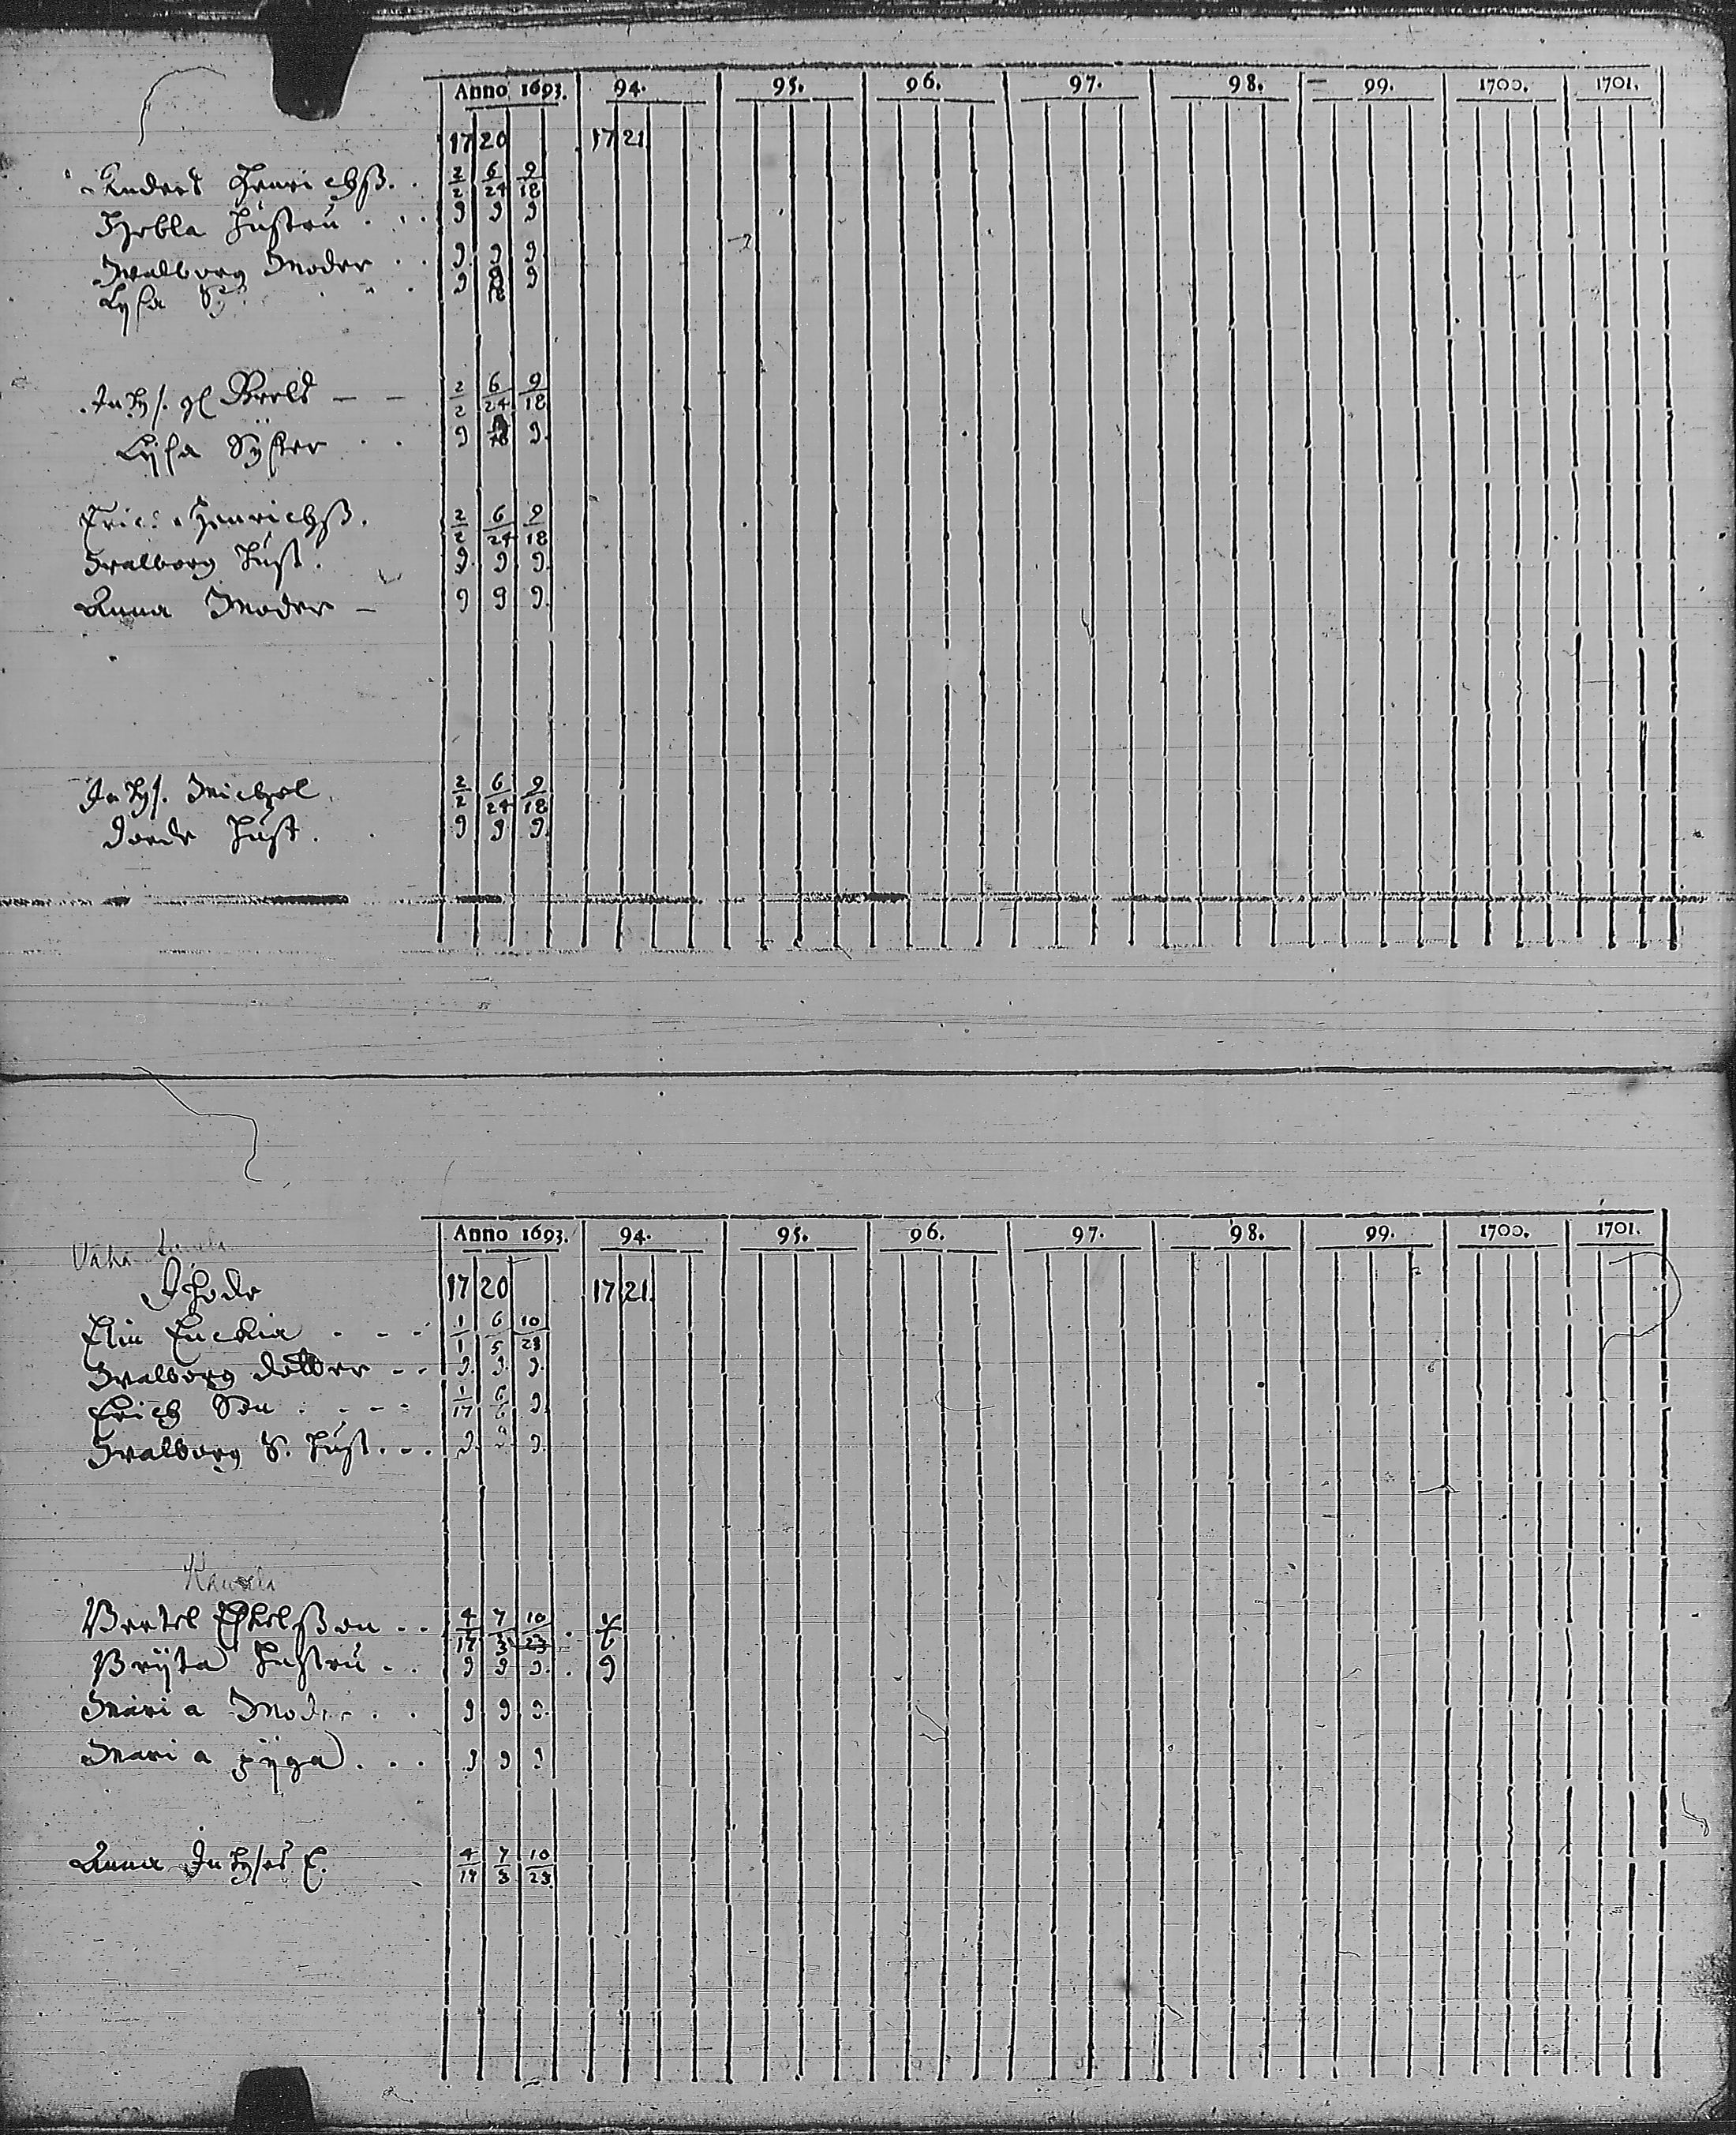 Anno 1693. 94. 95. 96. 97. 98. 99. 1700. 1701.
17 20 17 21
Anders Henrichß. 2/2 6/24 9/18
Hebla Hustru 9 9 9
Walborg Moder 9 9 9
Lysa Sy: 9 9/18 9
Inhys. gl Brels 2/2 6/24 9/18
Lysa Syster 9 9.
Eric: Henrichß. 2/2 6/24 9/18
Walborg Hust. 9 9 9
Anna Moder 9 9 9.
Inhys. Michel 2/2 6/24 9/18
Dorde Hust. 9 9 9
Anno 1693. 94. 95. 96. 97. 98. 99. 1700. 1701.
Vähä
17 20 17 21
Elin Enckia 1/1 6/5 10/23
Walborg Dotter 9 9 9
Erich Son 1/17 6/6 9
Walborg S. Hust. 9 9 9
Bertel Eskelßon 4/17 7/3 10/23
Brijta Hustru 9 9 9 9
Maria Moder 9 9 9
Maria pijga 9 9 9
Anna Inhyses E. 4/17 7/3 10/23